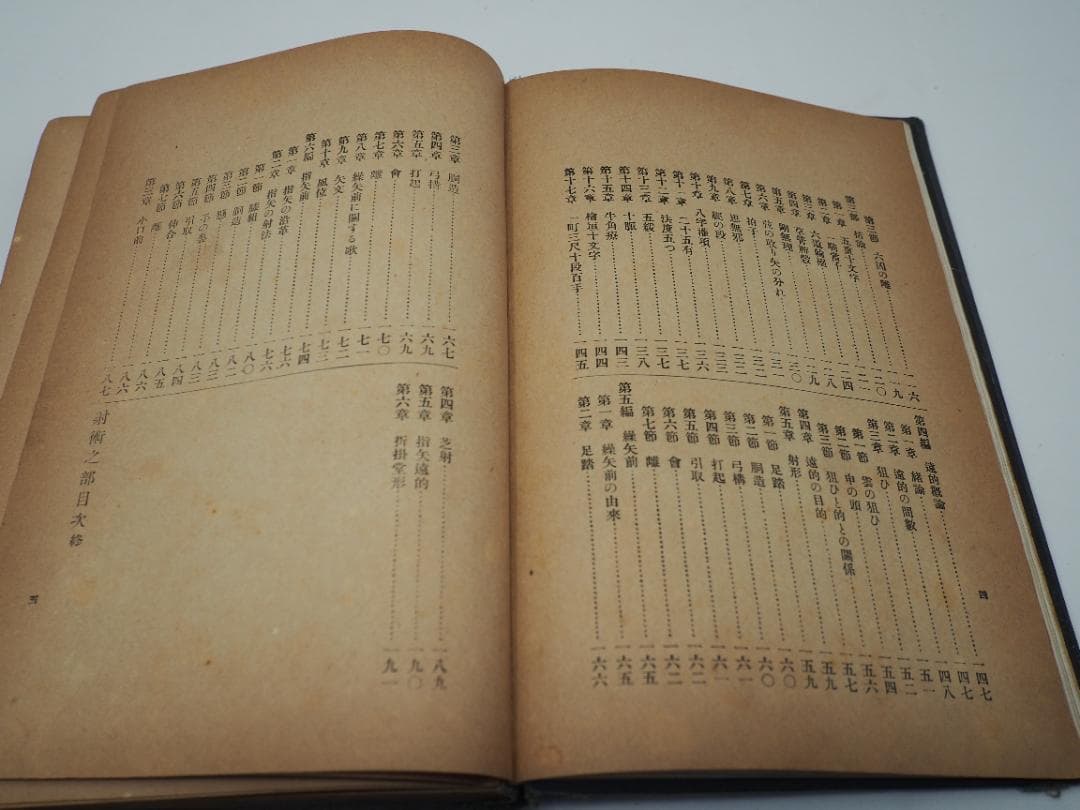 第三節 六凶の巻……一一六
第三編 摘論……一一九
第一章 五重十文字……一二〇
第二章 一騎當千……一二一
第三章 六道輪廻……一二四
第四章 ……一二九
第五章 剛無理……一三〇
第六章 弦の取り矢の分れ……一三二
第七章 拍子……一三三
第八章 思無邪……一三三
第九章 ……の段……一三六
第十章 八字……一三六
第十一章 二十五有……一三七
第十二章 法度五つ……一三七
第十三章 五緩……一三八
第十四章 十脈……一四三
第十五章 牛角療……一四三
第十六章 檜垣十文字……一四四
第十七章 一町三尺十段百手……一四五
第四編 遠的槪論……一四七
第一章 緒論……一四七
第二章 遠的の間數……一四八
第三章 狙ひ……一五一
第一節 雲の狙ひ……一五二
第二節 申の頭……一五四
第三節 狙ひと的との關係……一五六
第四章 遠的の目的……一五七
第五章 射形……一五九
第一節 足踏……一五九
第二節 胴造……一六〇
第三節 弓構……一六〇
第四節 打起……一六一
第五節 引取……一六一
第六節 會……一六二
第七節 離……一六二
第五編 繰矢前……一六五
第一章 繰矢前の由來……一六五
第二章 足踏……一六六
四
第三章 胴造……一六七
第四章 弓構……一六九
第五章 打起……一六九
第六章 會……一七〇
第七章 離……一七一
第八章 繰矢前に關する歌……一七二
第九章 矢文……一七三
第十章 風位……一七四
第六編 指矢前……一七六
第一章 指矢の沿革……一七六
第二章 指矢の射法……一八〇
第一節 膝組……一八二
第二節 胴造……一八三
第三節 ……一八三
第四節 手の……一八四
第五節 引取……一八五
第六節 ……合……一八六
第七節 離……一八六
第三章 小口前……一八七
第四章 芝射……一八九
第五章 指矢遠的……一九〇
第六章 折掛堂形……一九一
射術之部目次終
五